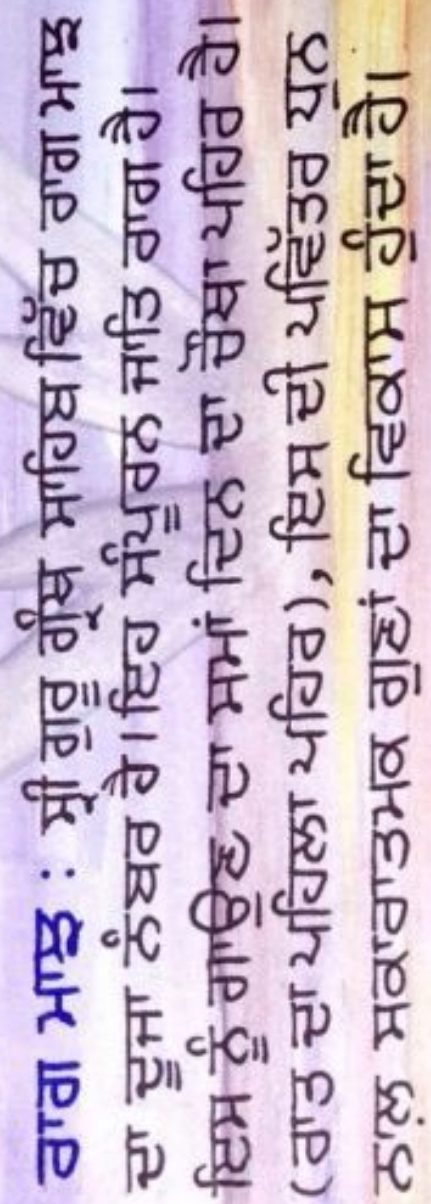 ਰਾਗ ਮਾਝ : ਸ੍ਰੀ ਗੁਰੂ ਗ੍ਰੰਥ ਸਾਹਿਬ ਵਿੱਚ ਰਾਗ ਮਾਝ
ਦਾ ਦੂਜਾ ਨੰਬਰ ਹੈ। ਇਹ ਸੰਪੂਰਨ ਜਾਤਿ ਰਾਗ ਹੈ।
ਇਸ ਨੂੰ ਗਾਉਣ ਦਾ ਸਮਾਂ ਦਿਨ ਦਾ ਚੌਥਾ ਪਹਿਰ ਹੈ।
(ਰਾਤ ਦਾ ਪਹਿਲਾ ਪਹਿਰ), ਇਸ ਦੀ ਪਵਿੱਤਰ ਧੁਨ
ਸਕਾਰਾਤਮਕ ਗੁਣਾਂ ਦਾ ਵਿਕਾਸ ਹੁੰਦਾ ਹੈ।